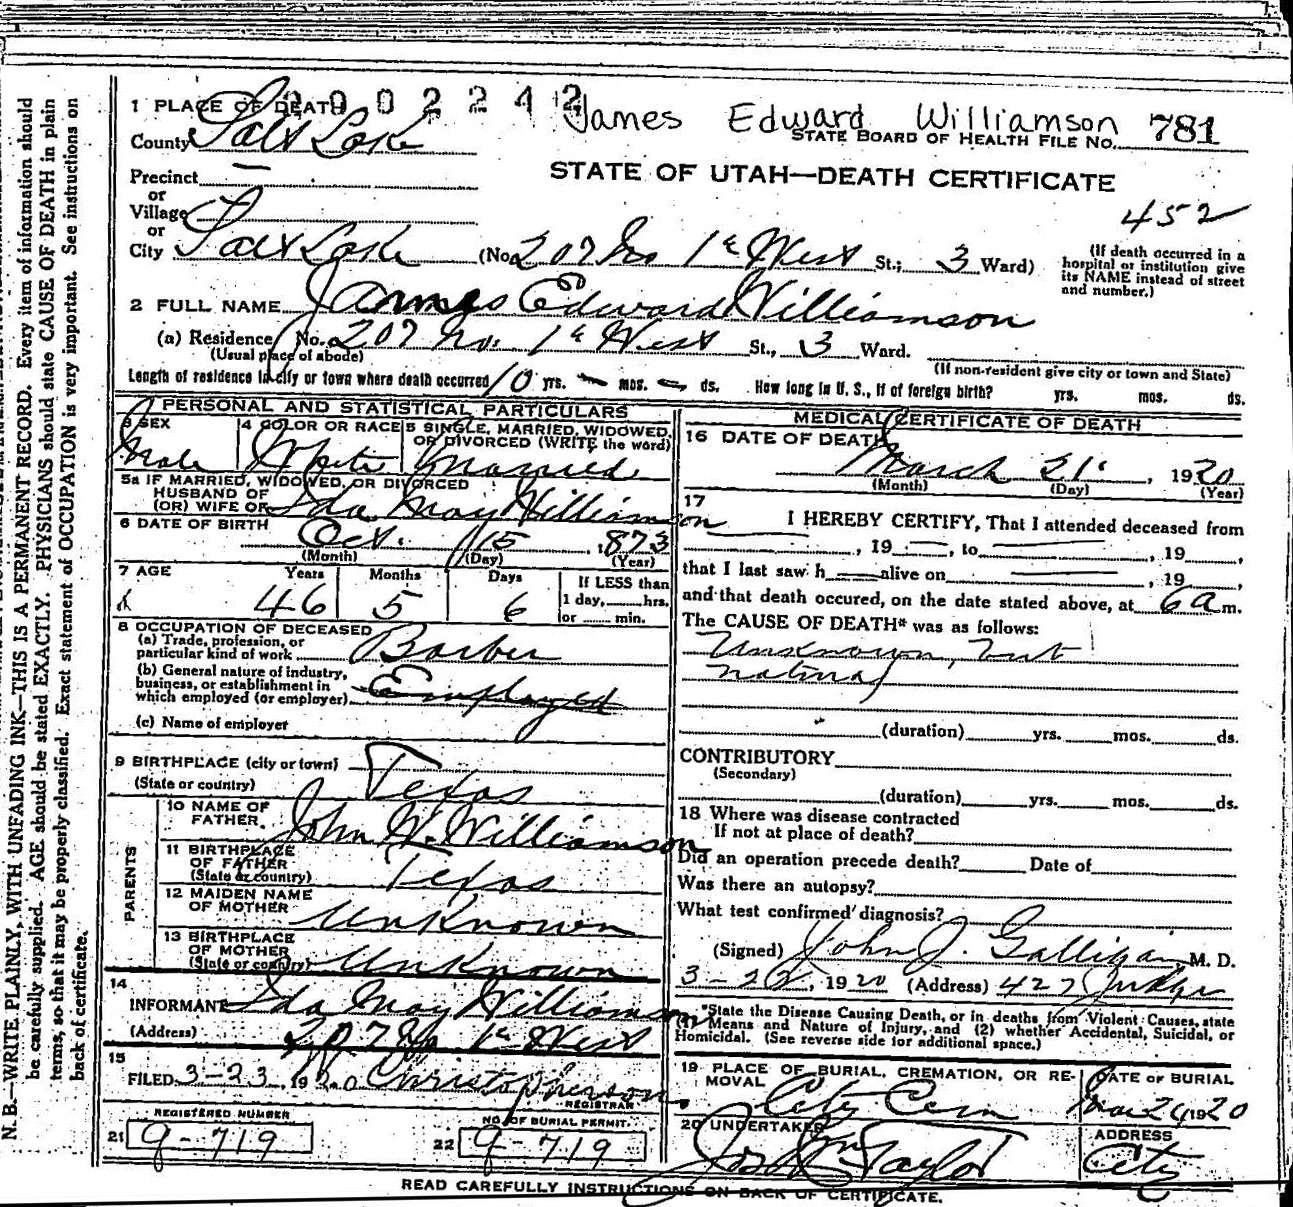 0002242
James Edward Williamson
STATE BOARD OF HEALTH FILE NO. 781
STATE OF UTAH—DEATH CERTIFICATE
452
1 PLACE OF DEATH
County Salt Lake
Precinct —
or
Village
or
City Salt Lake (No. 207 No 1st West St.; 3 Ward)
(If death occurred in a hospital or institution give its NAME instead of street and number.)
2 FULL NAME James Edward Williamson
(a) Residence No. 207 No. 1st West St., 3 Ward.
(Usual place of abode)
(If non-resident give city or town and State)
Length of residence in city or town where death occurred 10 yrs. — mos. — ds. How long in U. S., if of foreign birth? yrs. mos. ds.
PERSONAL AND STATISTICAL PARTICULARS
3 SEX Male
4 COLOR OR RACE White
5 SINGLE, MARRIED, WIDOWED, OR DIVORCED (WRITE the word) Married
5a IF MARRIED, WIDOWED, OR DIVORCED
HUSBAND OF
(OR) WIFE OF Ida May Williamson
6 DATE OF BIRTH Oct. 15, 1873
(Month) (Day) (Year)
7 AGE Years Months Days
46 5 6
If LESS than
1 day, hrs.
or min.
8 OCCUPATION OF DECEASED
(a) Trade, profession, or
particular kind of work Barber
(b) General nature of industry,
business, or establishment in
which employed (or employer) Employed
(c) Name of employer
9 BIRTHPLACE (city or town)
(State or country) Texas
PARENTS
10 NAME OF
FATHER John W. Williamson
11 BIRTHPLACE
OF FATHER
(State or country) Texas
12 MAIDEN NAME
OF MOTHER Unknown
13 BIRTHPLACE
OF MOTHER
(State or country) Unknown
14
INFORMANT Ida May Williamson
(Address) 207 No 1st West
15
FILED 3-23, 1920 Christopherson
REGISTRAR
REGISTERED NUMBER
21 9-719
NO. OF BURIAL PERMIT
22 9-719
MEDICAL CERTIFICATE OF DEATH
16 DATE OF DEATH
March 21, 1920
(Month) (Day) (Year)
17
I HEREBY CERTIFY, That I attended deceased from
, 19 —, to , 19 ,
that I last saw h alive on , 19 ,
and that death occured, on the date stated above, at 6 a m.
The CAUSE OF DEATH* was as follows:
Unknown, but
natural
(duration) yrs. mos. ds.
CONTRIBUTORY
(Secondary)
(duration) yrs. mos. ds.
18 Where was disease contracted
If not at place of death?
Did an operation precede death? Date of
Was there an autopsy?
What test confirmed diagnosis?
(Signed) John J. Galligan, M. D.
3-22, 1920 (Address) 427 Judge
*State the Disease Causing Death, or in deaths from Violent Causes, state
(1) Means and Nature of Injury, and (2) whether Accidental, Suicidal, or
Homicidal. (See reverse side for additional space.)
19 PLACE OF BURIAL, CREMATION, OR RE-
MOVAL City Cem
DATE OF BURIAL
Mar 24 1920
20 UNDERTAKER
Jos Wm Taylor
ADDRESS
City
READ CAREFULLY INSTRUCTIONS ON BACK OF CERTIFICATE.
N. B.—WRITE PLAINLY, WITH UNFADING INK—THIS IS A PERMANENT RECORD. Every item of information should
be carefully supplied. AGE should be stated EXACTLY. PHYSICIANS should state CAUSE OF DEATH in plain
terms, so that it may be properly classified. Exact statement of OCCUPATION is very important. See instructions on
back of certificate.